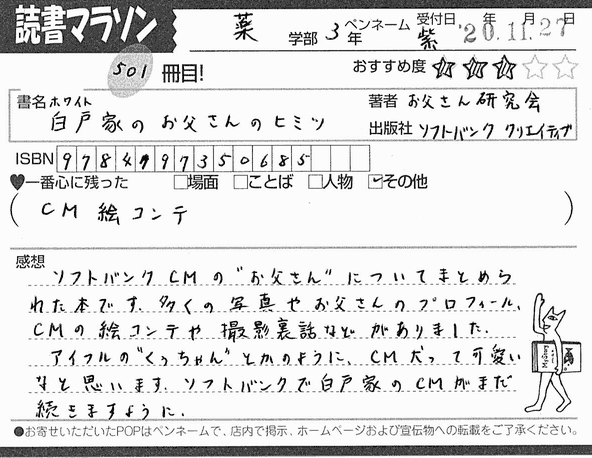 読書マラソン 薬 学部 3年 ペンネーム 紫 受付日 '20年.11月.27日
501 冊目! おすすめ度 ★★★☆☆
書名 白戸家のお父さんのヒミツ
ホワイト
著者 お父さん研究会
出版社 ソフトバンク クリエイティブ
ISBN 9784797350685
♥一番心に残った □場面 □ことば □人物 ☑その他
( CM 絵コンテ )
感想
ソフトバンクCMの"お父さん"についてまとめら
れた本です。多くの写真やお父さんのプロフィール、
CMの絵コンテや撮影裏話などがありました。
アイフルの"くぅちゃん"とかのように、CM犬って可愛い
なと思います。ソフトバンクで白戸家のCMがまだ
続きますように。
●お寄せいただいたPOPはペンネームで、店内で掲示、ホームページおよび宣伝物への転載をご了承ください。